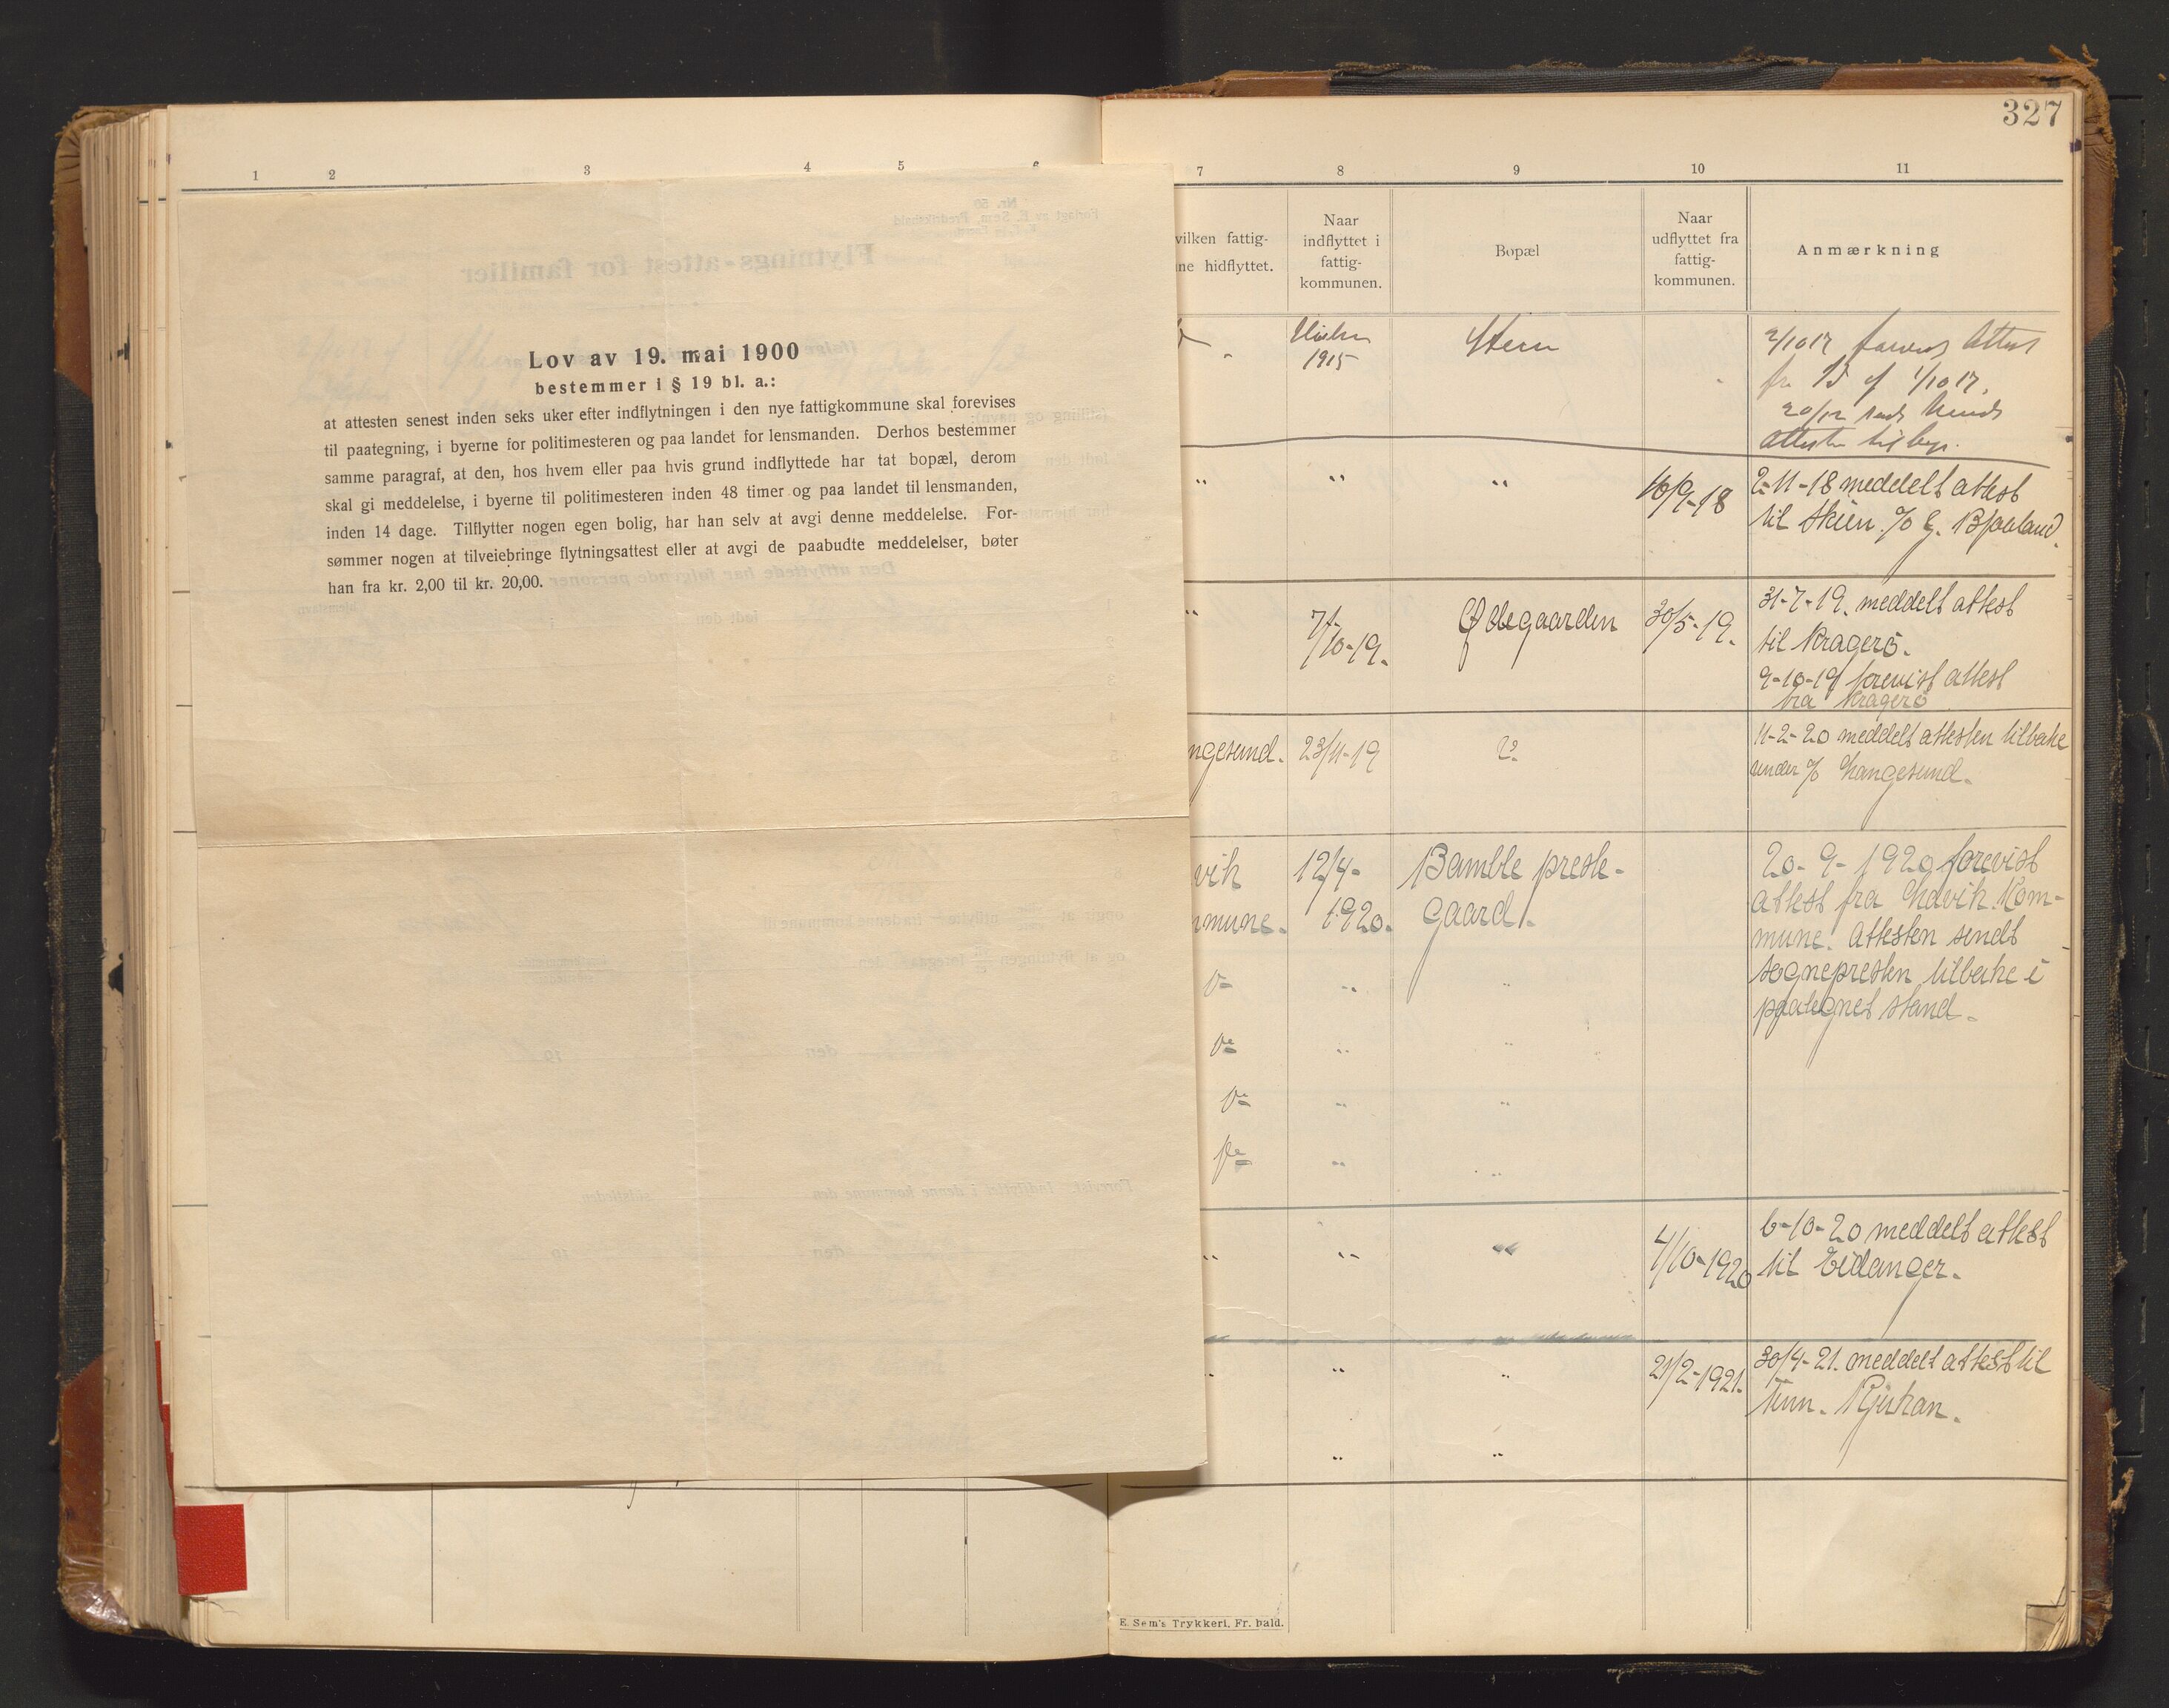 327
1 2 3 4 5 6
Lov av 19. mai 1900
bestemmer i § 19 bl. a.:
at attesten senest inden seks uker efter indflytningen i den nye fattigkommune skal forevises
til paategning, i byerne for politimesteren og paa landet for lensmanden. Derhos bestemmer
samme paragraf, at den, hos hvem eller paa hvis grund indflyttede har tat bopæl, derom
skal gi meddelelse, i byerne til politimesteren inden 48 timer og paa landet til lensmanden,
inden 14 dage. Tilflytter nogen egen bolig, har han selv at avgi denne meddelelse. For-
sømmer nogen at tilveiebringe flytningsattest eller at avgi de paabudte meddelelser, bøter
han fra kr. 2,00 til kr. 20,00.
7 8 9 10 11
vilken fattig-
ne hidflyttet.
Naar
indflyttet i
fattig-
kommunen.
Bopæl
Naar
udflyttet fra
fattig-
kommunen.
Anmærkning
1915
" " " 10/9-18 2-11-18 meddelt attest
til Skien % G. Bjaaland.
" 7/10-19. Ødegaarden 30/5-19. 31-7-19. meddelt attest
til Kragerö.
9-10-19 forevist attest
fra Kragerö
ngesund. 23/11-19 11-2-20 meddelt attesten tilbake
under % Langesund.
vik 12/4- Bamble preste- 20-9-1920 forevist
mmune. 1920. gaard. attest fra Kom-
mune. Attesten sendt
" " sognepresten tilbake i
paategnet stand.
" "
" "
" "
" " " 4/10-1920 6-10-20 meddelt attest
til Eidanger.
" " " 21/2-1921. 30/4-21. meddelt attest til
Tinn. Rjukan.
" "
E. Sem's Trykkeri, Fr. hald.